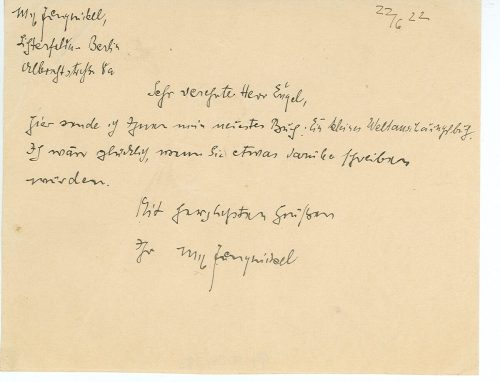 Max Jungnickel,
22/6 22
Lichterfelde-Berlin
Albrechtstraße
Sehr verehrter Herr Engel,
hier sende ich Ihnen mein neuestes Buch: Ein kleines Weltanschauungsbuch.
Ich wäre glücklich, wenn Sie etwas darüber schreiben
würden.
Mit herzlichsten Grüßen
Ihr Max Jungnickel